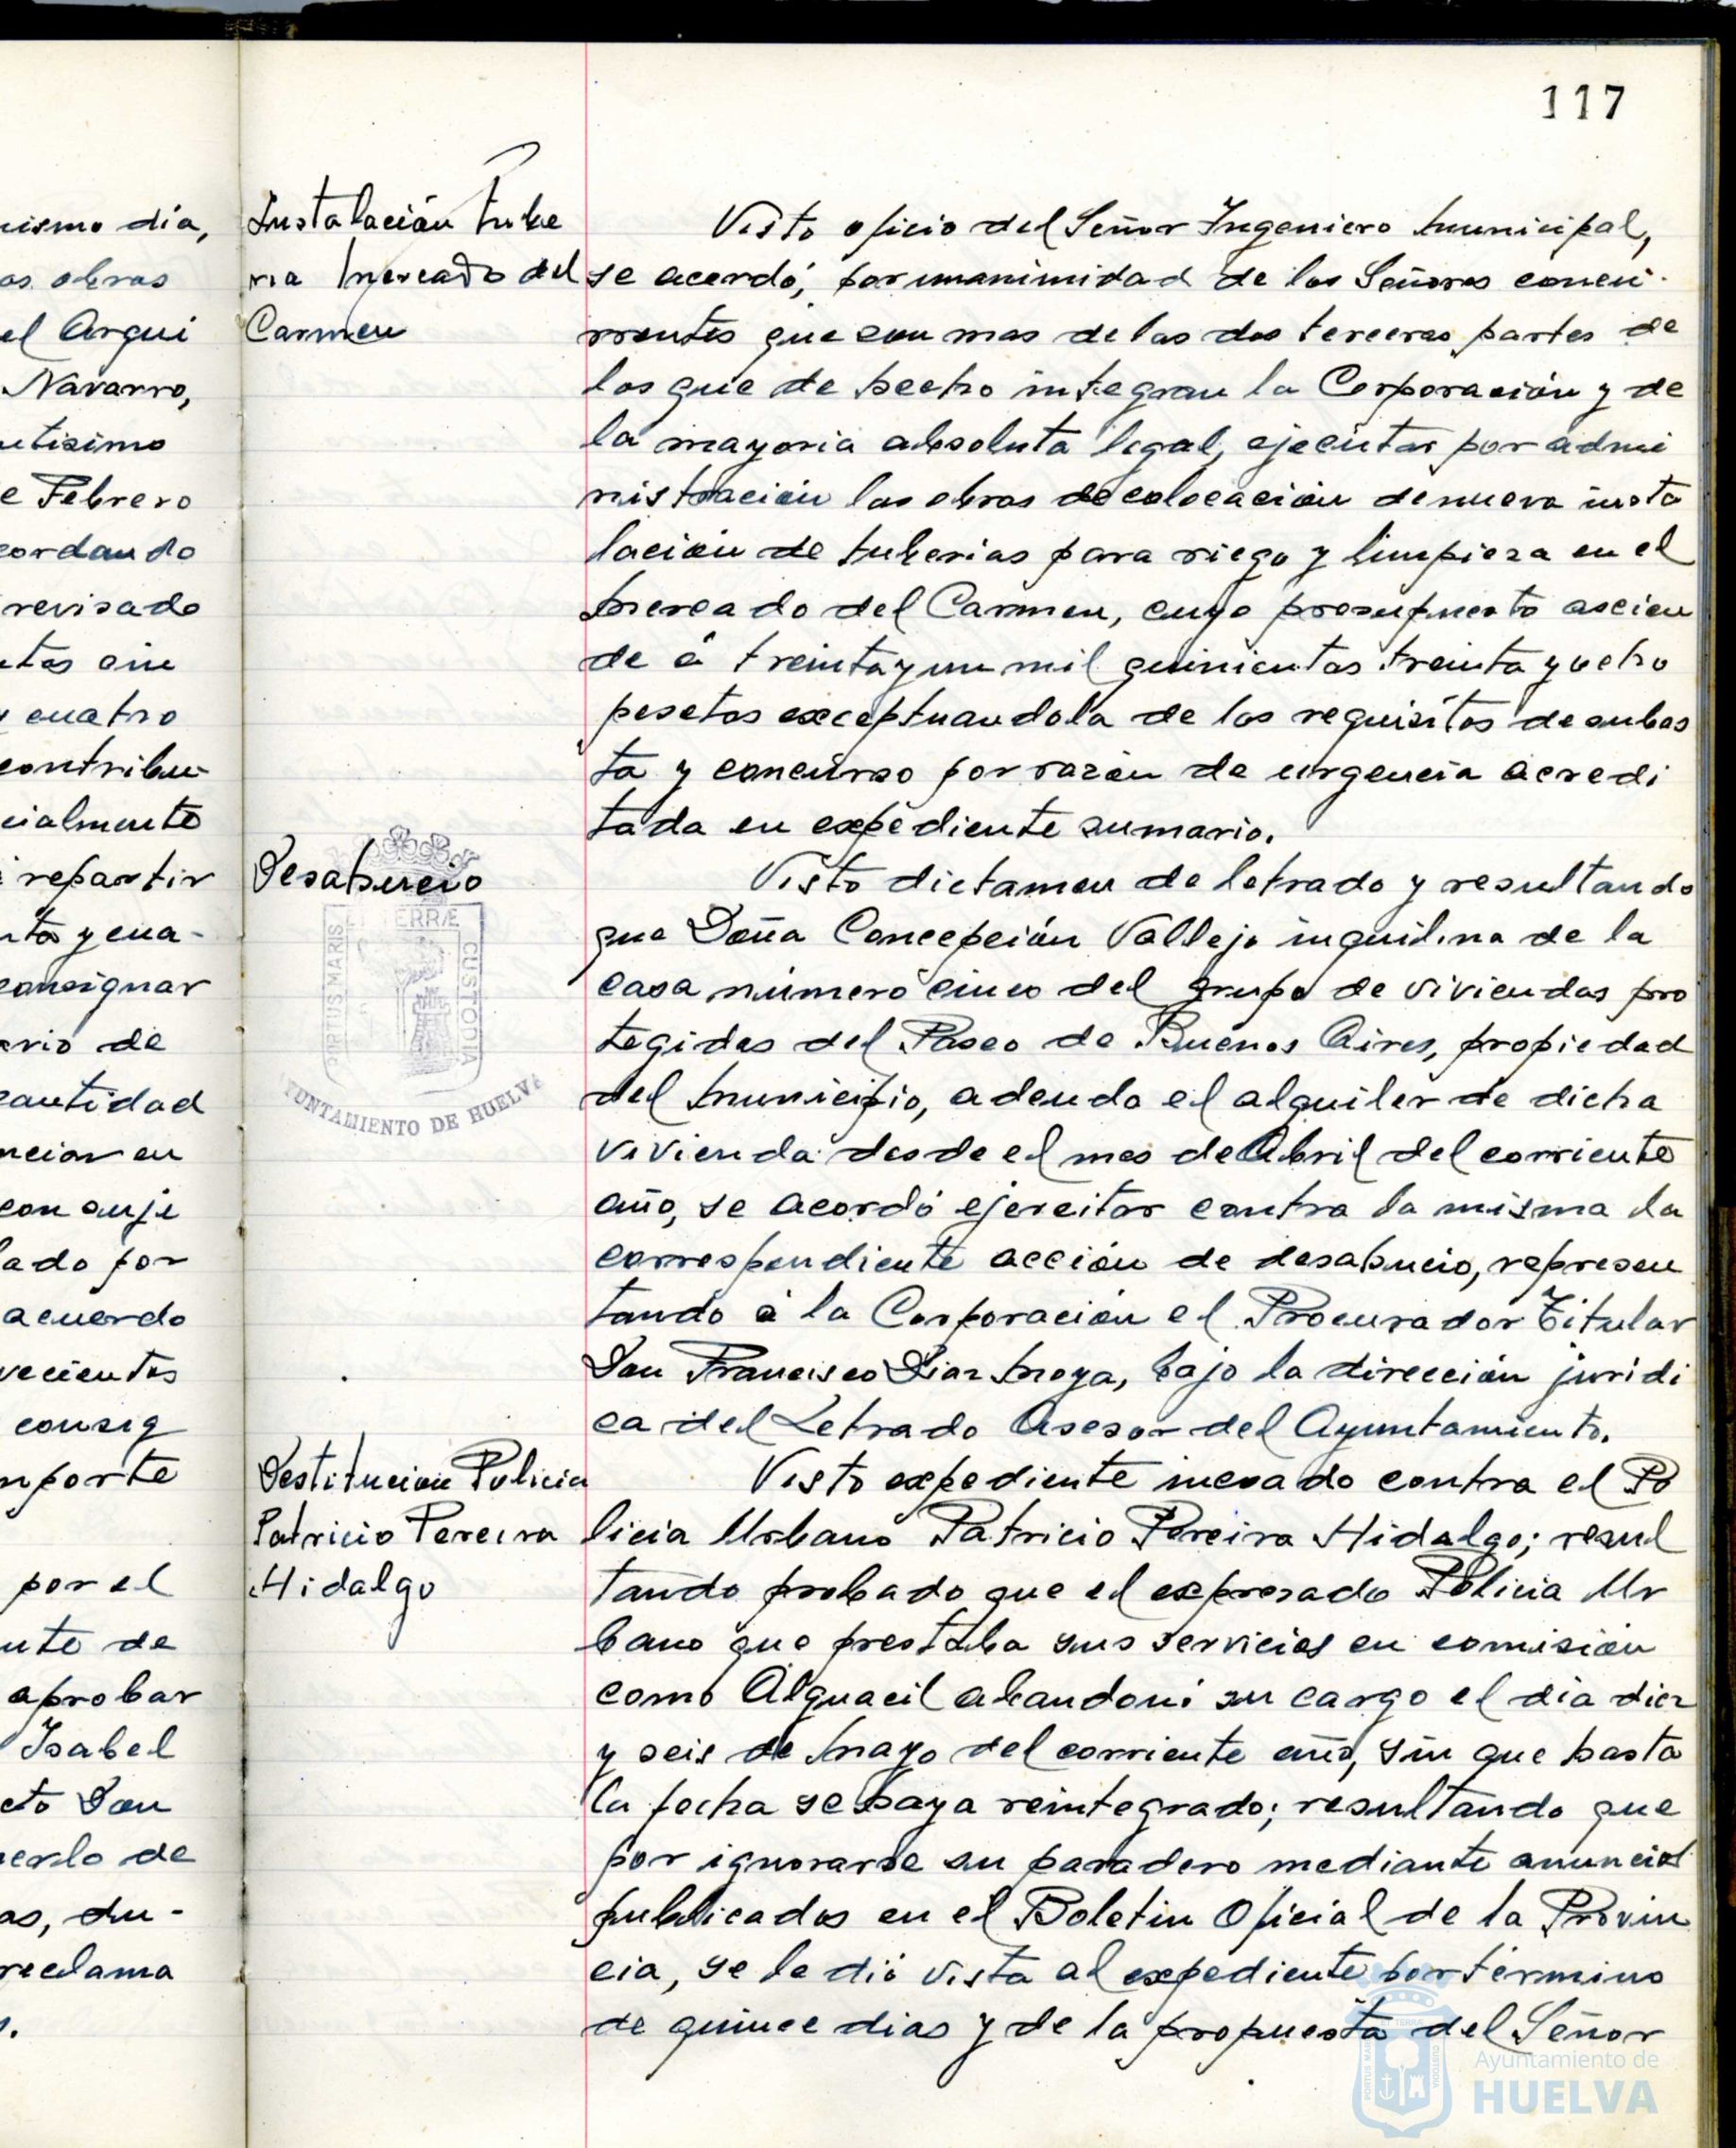 117
nismo día,
as obras
el Arqui
Navarro,
utisimo
e Febrero
cordando
revisado
y cuatro
contribu-
cialmente
repartir
nta y cua-
consignar
ario de
cantidad
nciar en
con suje
lado por
acuerdo
vecientos
consig
mporte
por el
nte de
aprobar
Isabel
cto Don
uerdo de
as, du-
reclama
Instalación tube
ria Mercado del
Carmen
Visto oficio del Señor Ingeniero Municipal,
se acordó, por unanimidad de los Señores concu-
rrentes que con mas de las dos terceras partes de
los que de hecho integran la Corporación y de
la mayoria absoluta legal, ejecutar por admi
nistración las obras de colocación de nueva insta
lación de tuberias para riego y limpieza en el
Mercado del Carmen, cuyo presupuesto ascien
de á treinta y un mil quinientas treinta y ocho
pesetas exceptuandola de los requisitos de subas
ta y concurso por razón de urgencia acredi
tada en expediente sumario.
Desahucio
Visto dictamen de letrado y resultando
que Doña Concepción Vallejo inquilina de la
casa número cinco del grupo de viviendas pro
tegidas del Paseo de Buenos Aires, propiedad
del Municipio, adeuda el alquiler de dicha
vivienda desde el mes de Abril del corriente
año, se acordó ejercitar contra la misma la
correspondiente acción de desahucio, represen
tando á la Corporación el Procurador Titular
Don Francisco Diaz Moya, bajo la dirección juridi
ca del Letrado Asesor del Ayuntamiento.
PORTUS MARIS ET TERRÆ CUSTODIA
AYUNTAMIENTO DE HUELVA
Destitucion Policia
Patricio Pereira
Hidalgo
Visto expediente incoado contra el Po
licia Urbano Patricio Pereira Hidalgo; resul
tando probado que el expresado Policia Ur
bano que prestaba sus servicios en comisión
como Alguacil abandonó su cargo el día diez
y seis de Mayo del corriente año, sin que hasta
la fecha se haya reintegrado; resultando que
por ignorarse su paradero mediante anuncios
publicados en el Boletin Oficial de la Provin
cia, se le dió vista al expediente por término
de quince dias y de la propuesta del Señor
Ayuntamiento de
HUELVA